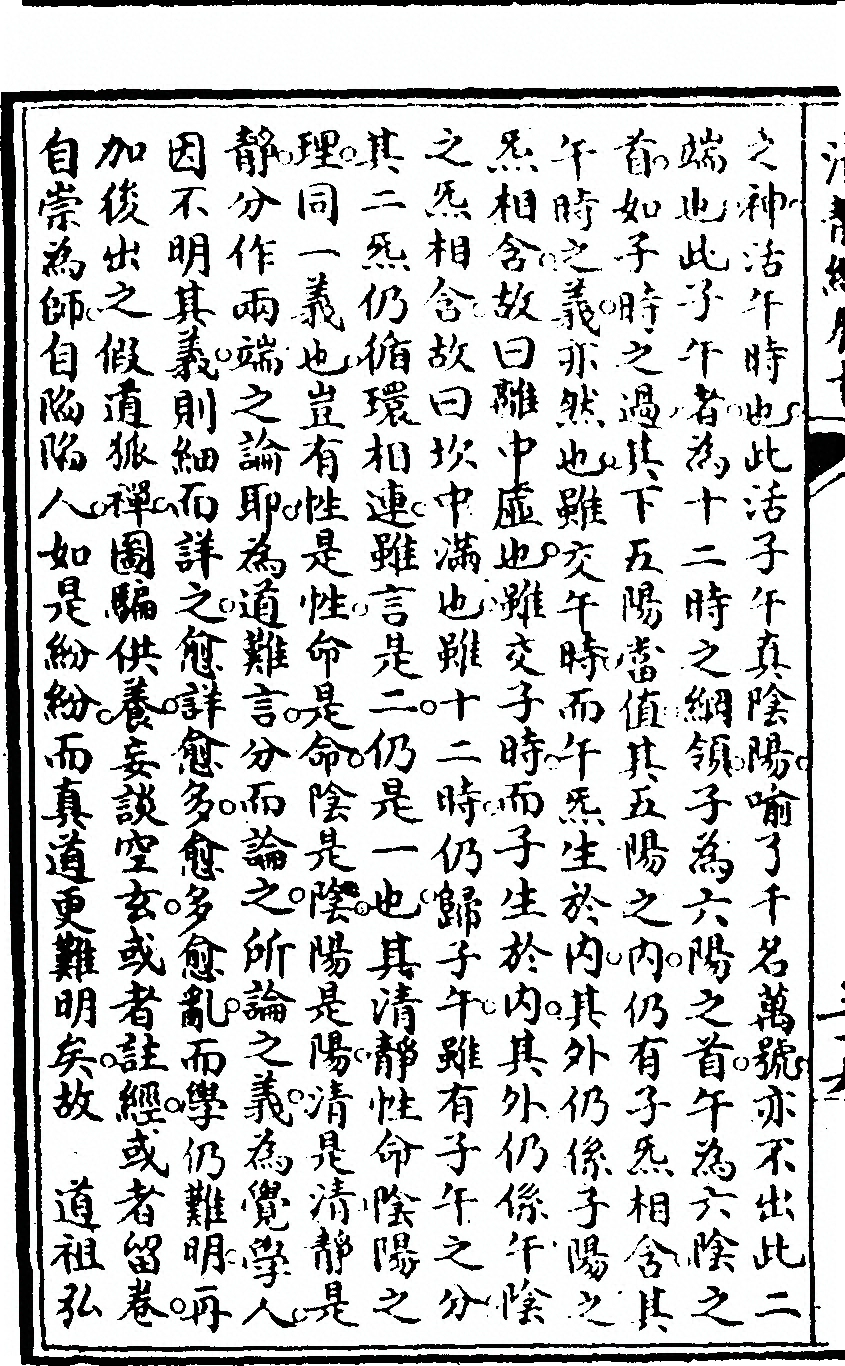 之神活午時也此活子午真陰陽喻了千名萬號亦不出此二
端也此子午者為十二時之綱領子為六陽之首午為六陰之
首如子時之過其下五陽當值其五陽之內仍有子炁相含其
午時之義亦然也雖交午時而午炁生於內其外仍係子陽之
炁相含故曰離中虛也雖交子時而子生於內其外仍係午陰
之炁相含故曰坎中滿也雖十二時仍歸子午雖有子午之分
其二炁仍循環相連雖言是二仍是一也其清靜性命陰陽之
理同一義也豈有性是性命是命陰是陰陽是陽清是清靜是
靜分作兩端之論耶為道難言分而論之所論之義為覺學人
因不明其義則細而詳之愈詳愈多愈多愈亂而學仍難明再
加後出之假道狐禪圖騙供養妄談空玄或者註經或者留卷
自崇為師自陷陷人如是紛紛而真道更難明矣故　道祖弘